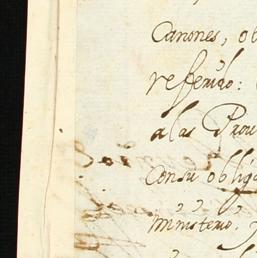 Canones, ob
refferido:
a las Prou
con su oblig
ministerio. y